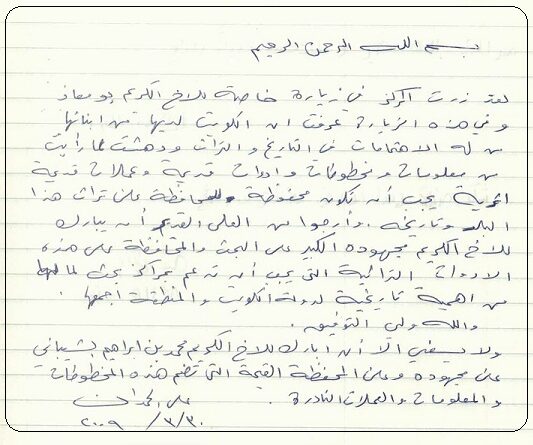 بسم الله الرحمن الرحيم
لقد زرت المركز في زيارة خاصة للاخ الكريم بو معاذ
وفي هذه الزيارة عرفت ان الكويت لديها من ابنائها
من له الاهتمامات في التاريخ والتراث ودهشت لما رأيت
من معلومات ومخطوطات وادوات قديمة وعملات قديمة
اثرية يجب أن تكون محفوظة وللمحافظة على تراث هذا
البلد وتاريخه. وأرجوا من العلي القدير أن يبارك
للاخ الكريم مجهوده الكبير على البحث والمحافظة على هذه
الادوات التراثية التي يجب أن تدعم بمراكز بحث لما لها
من اهمية تاريخية لدولة الكويت والمنطقة اجمعها.
والله ولي التوفيق.
ولا يسعني الا أن ابارك للاخ الكريم محمد بن ابراهيم الشيباني
على مجهوده وعلى المحفظة القيمة التي تضم هذه المخطوطات
والمعلومات والعملات النادرة.
علي
٢٠٠٩ / ٣ / ٣٠